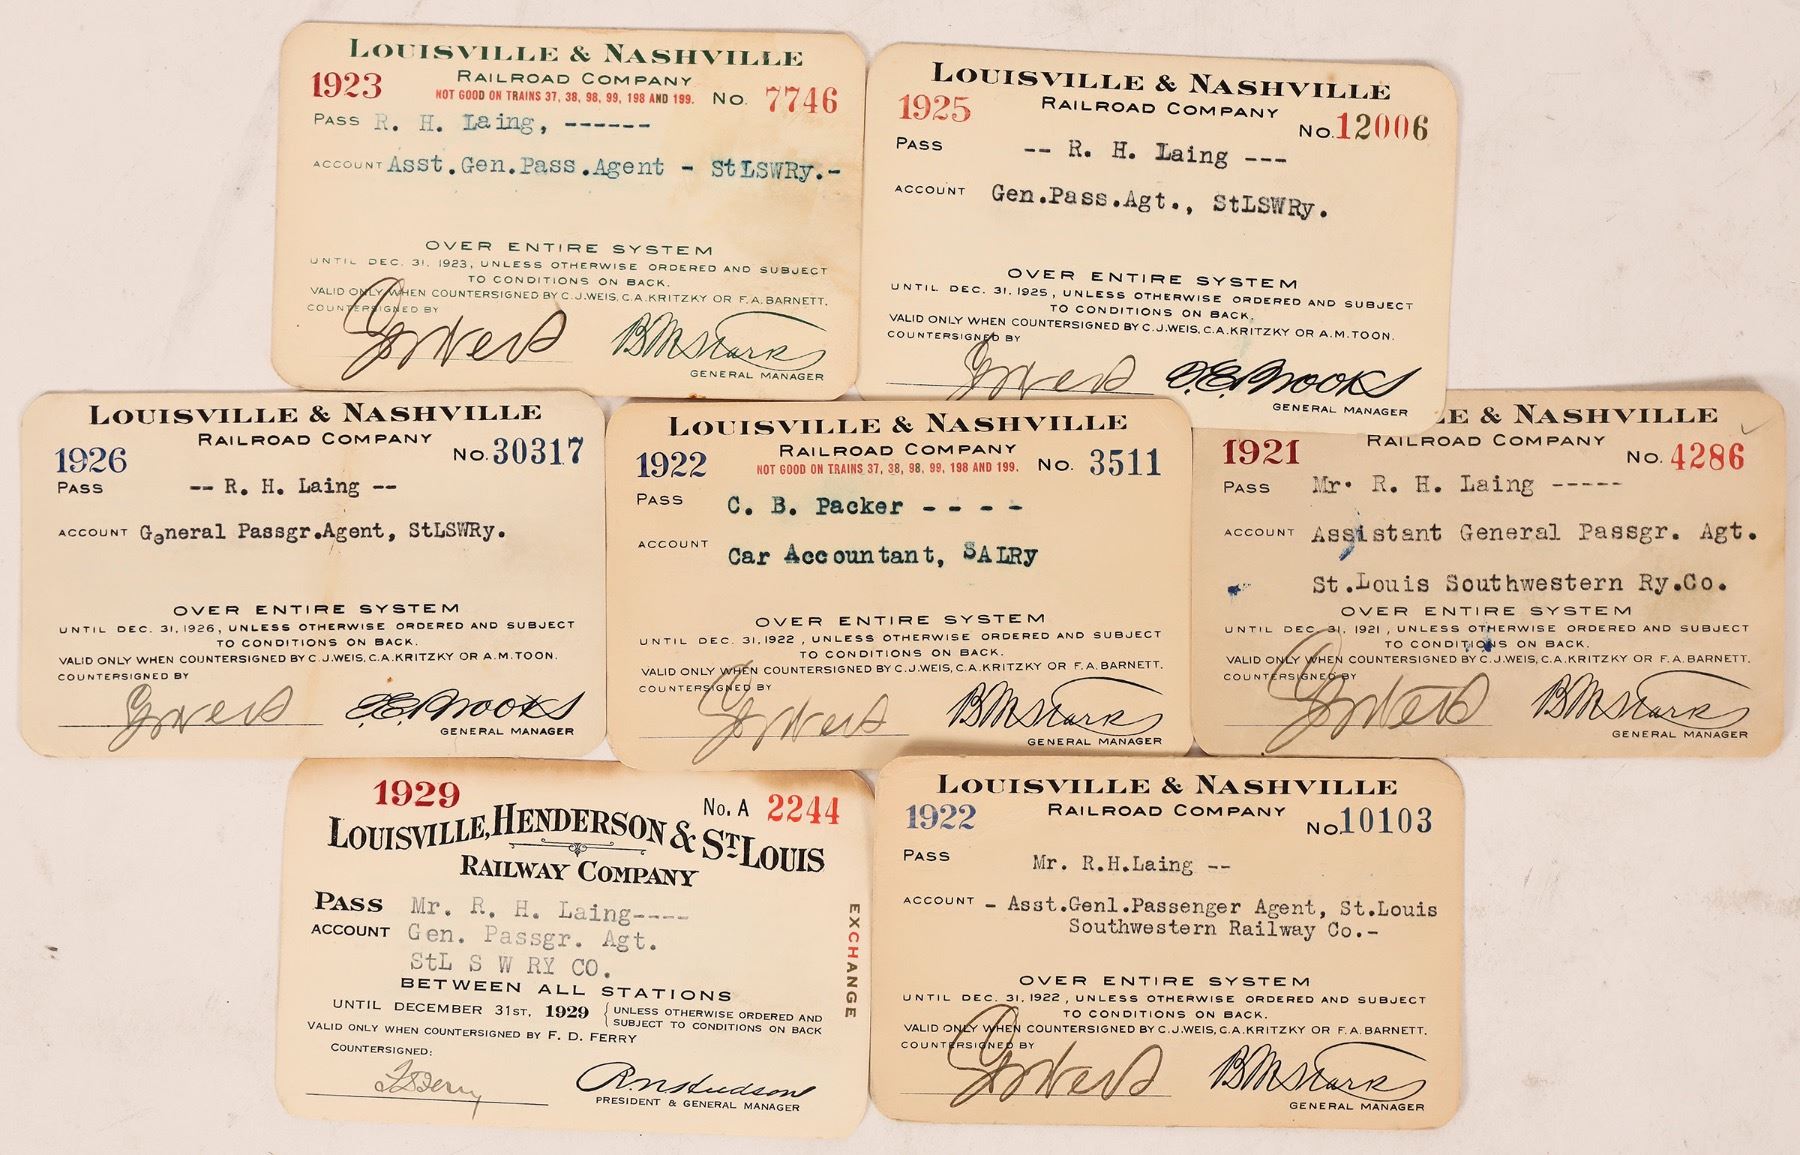 LOUISVILLE & NASHVILLE
RAILROAD COMPANY
1923
NOT GOOD ON TRAINS 37, 38, 98, 99, 198 AND 199.
No. 7746
PASS R. H. Laing, ------
ACCOUNT Asst.Gen.Pass.Agent - StLSWRy.-
OVER ENTIRE SYSTEM
UNTIL DEC. 31. 1923, UNLESS OTHERWISE ORDERED AND SUBJECT
TO CONDITIONS ON BACK.
VALID ONLY WHEN COUNTERSIGNED BY C.J.WEIS, C.A.KRITZKY OR F.A.BARNETT.
COUNTERSIGNED BY
CJWeis BMStarks
GENERAL MANAGER
LOUISVILLE & NASHVILLE
RAILROAD COMPANY
1925
No. 12006
PASS -- R. H. Laing ---
ACCOUNT Gen.Pass.Agt., StLSWRy.
OVER ENTIRE SYSTEM
UNTIL DEC. 31, 1925, UNLESS OTHERWISE ORDERED AND SUBJECT
TO CONDITIONS ON BACK.
VALID ONLY WHEN COUNTERSIGNED BY C.J.WEIS, C.A.KRITZKY OR A.M.TOON.
COUNTERSIGNED BY
CJWeis Brooks
GENERAL MANAGER
LOUISVILLE & NASHVILLE
RAILROAD COMPANY
1926
No. 30317
PASS -- R. H. Laing --
ACCOUNT General Passgr.Agent, StLSWRy.
OVER ENTIRE SYSTEM
UNTIL DEC. 31, 1926, UNLESS OTHERWISE ORDERED AND SUBJECT
TO CONDITIONS ON BACK.
VALID ONLY WHEN COUNTERSIGNED BY C.J.WEIS, C.A.KRITZKY OR A.M.TOON.
COUNTERSIGNED BY
CJWeis Brooks
GENERAL MANAGER
LOUISVILLE & NASHVILLE
RAILROAD COMPANY
1922
NOT GOOD ON TRAINS 37, 38, 98, 99, 198 AND 199.
No. 3511
PASS C. B. Packer - - - -
ACCOUNT Car Accountant, SALRy
OVER ENTIRE SYSTEM
UNTIL DEC. 31, 1922, UNLESS OTHERWISE ORDERED AND SUBJECT
TO CONDITIONS ON BACK.
VALID ONLY WHEN COUNTERSIGNED BY C.J.WEIS, C.A.KRITZKY OR F.A.BARNETT.
COUNTERSIGNED BY
CJWeis BMStarks
GENERAL MANAGER
LE & NASHVILLE
RAILROAD COMPANY
1921
No. 4286
PASS Mr. R. H. Laing -----
ACCOUNT Assistant General Passgr. Agt.
St.Louis Southwestern Ry.Co.
OVER ENTIRE SYSTEM
UNTIL DEC. 31, 1921, UNLESS OTHERWISE ORDERED AND SUBJECT
TO CONDITIONS ON BACK.
VALID ONLY WHEN COUNTERSIGNED BY C.J.WEIS, C.A.KRITZKY OR F.A.BARNETT.
COUNTERSIGNED BY
CJWeis BMStarks
GENERAL MANAGER
1929
No. A 2244
LOUISVILLE, HENDERSON & ST. LOUIS
RAILWAY COMPANY
PASS Mr. R. H. Laing----
ACCOUNT Gen. Passgr. Agt.
StL S W RY CO.
BETWEEN ALL STATIONS
UNTIL DECEMBER 31ST, 1929 { UNLESS OTHERWISE ORDERED AND
SUBJECT TO CONDITIONS ON BACK
VALID ONLY WHEN COUNTERSIGNED BY F. D. FERRY
COUNTERSIGNED:
FDFerry R.N.Hudson
PRESIDENT & GENERAL MANAGER
EXCHANGE
LOUISVILLE & NASHVILLE
RAILROAD COMPANY
1922
No. 10103
PASS Mr. R.H.Laing --
ACCOUNT - Asst.Genl.Passenger Agent, St.Louis
Southwestern Railway Co.-
OVER ENTIRE SYSTEM
UNTIL DEC. 31, 1922, UNLESS OTHERWISE ORDERED AND SUBJECT
TO CONDITIONS ON BACK.
VALID ONLY WHEN COUNTERSIGNED BY C.J.WEIS, C.A.KRITZKY OR F.A.BARNETT.
COUNTERSIGNED BY
CJWeis BMStarks
GENERAL MANAGER